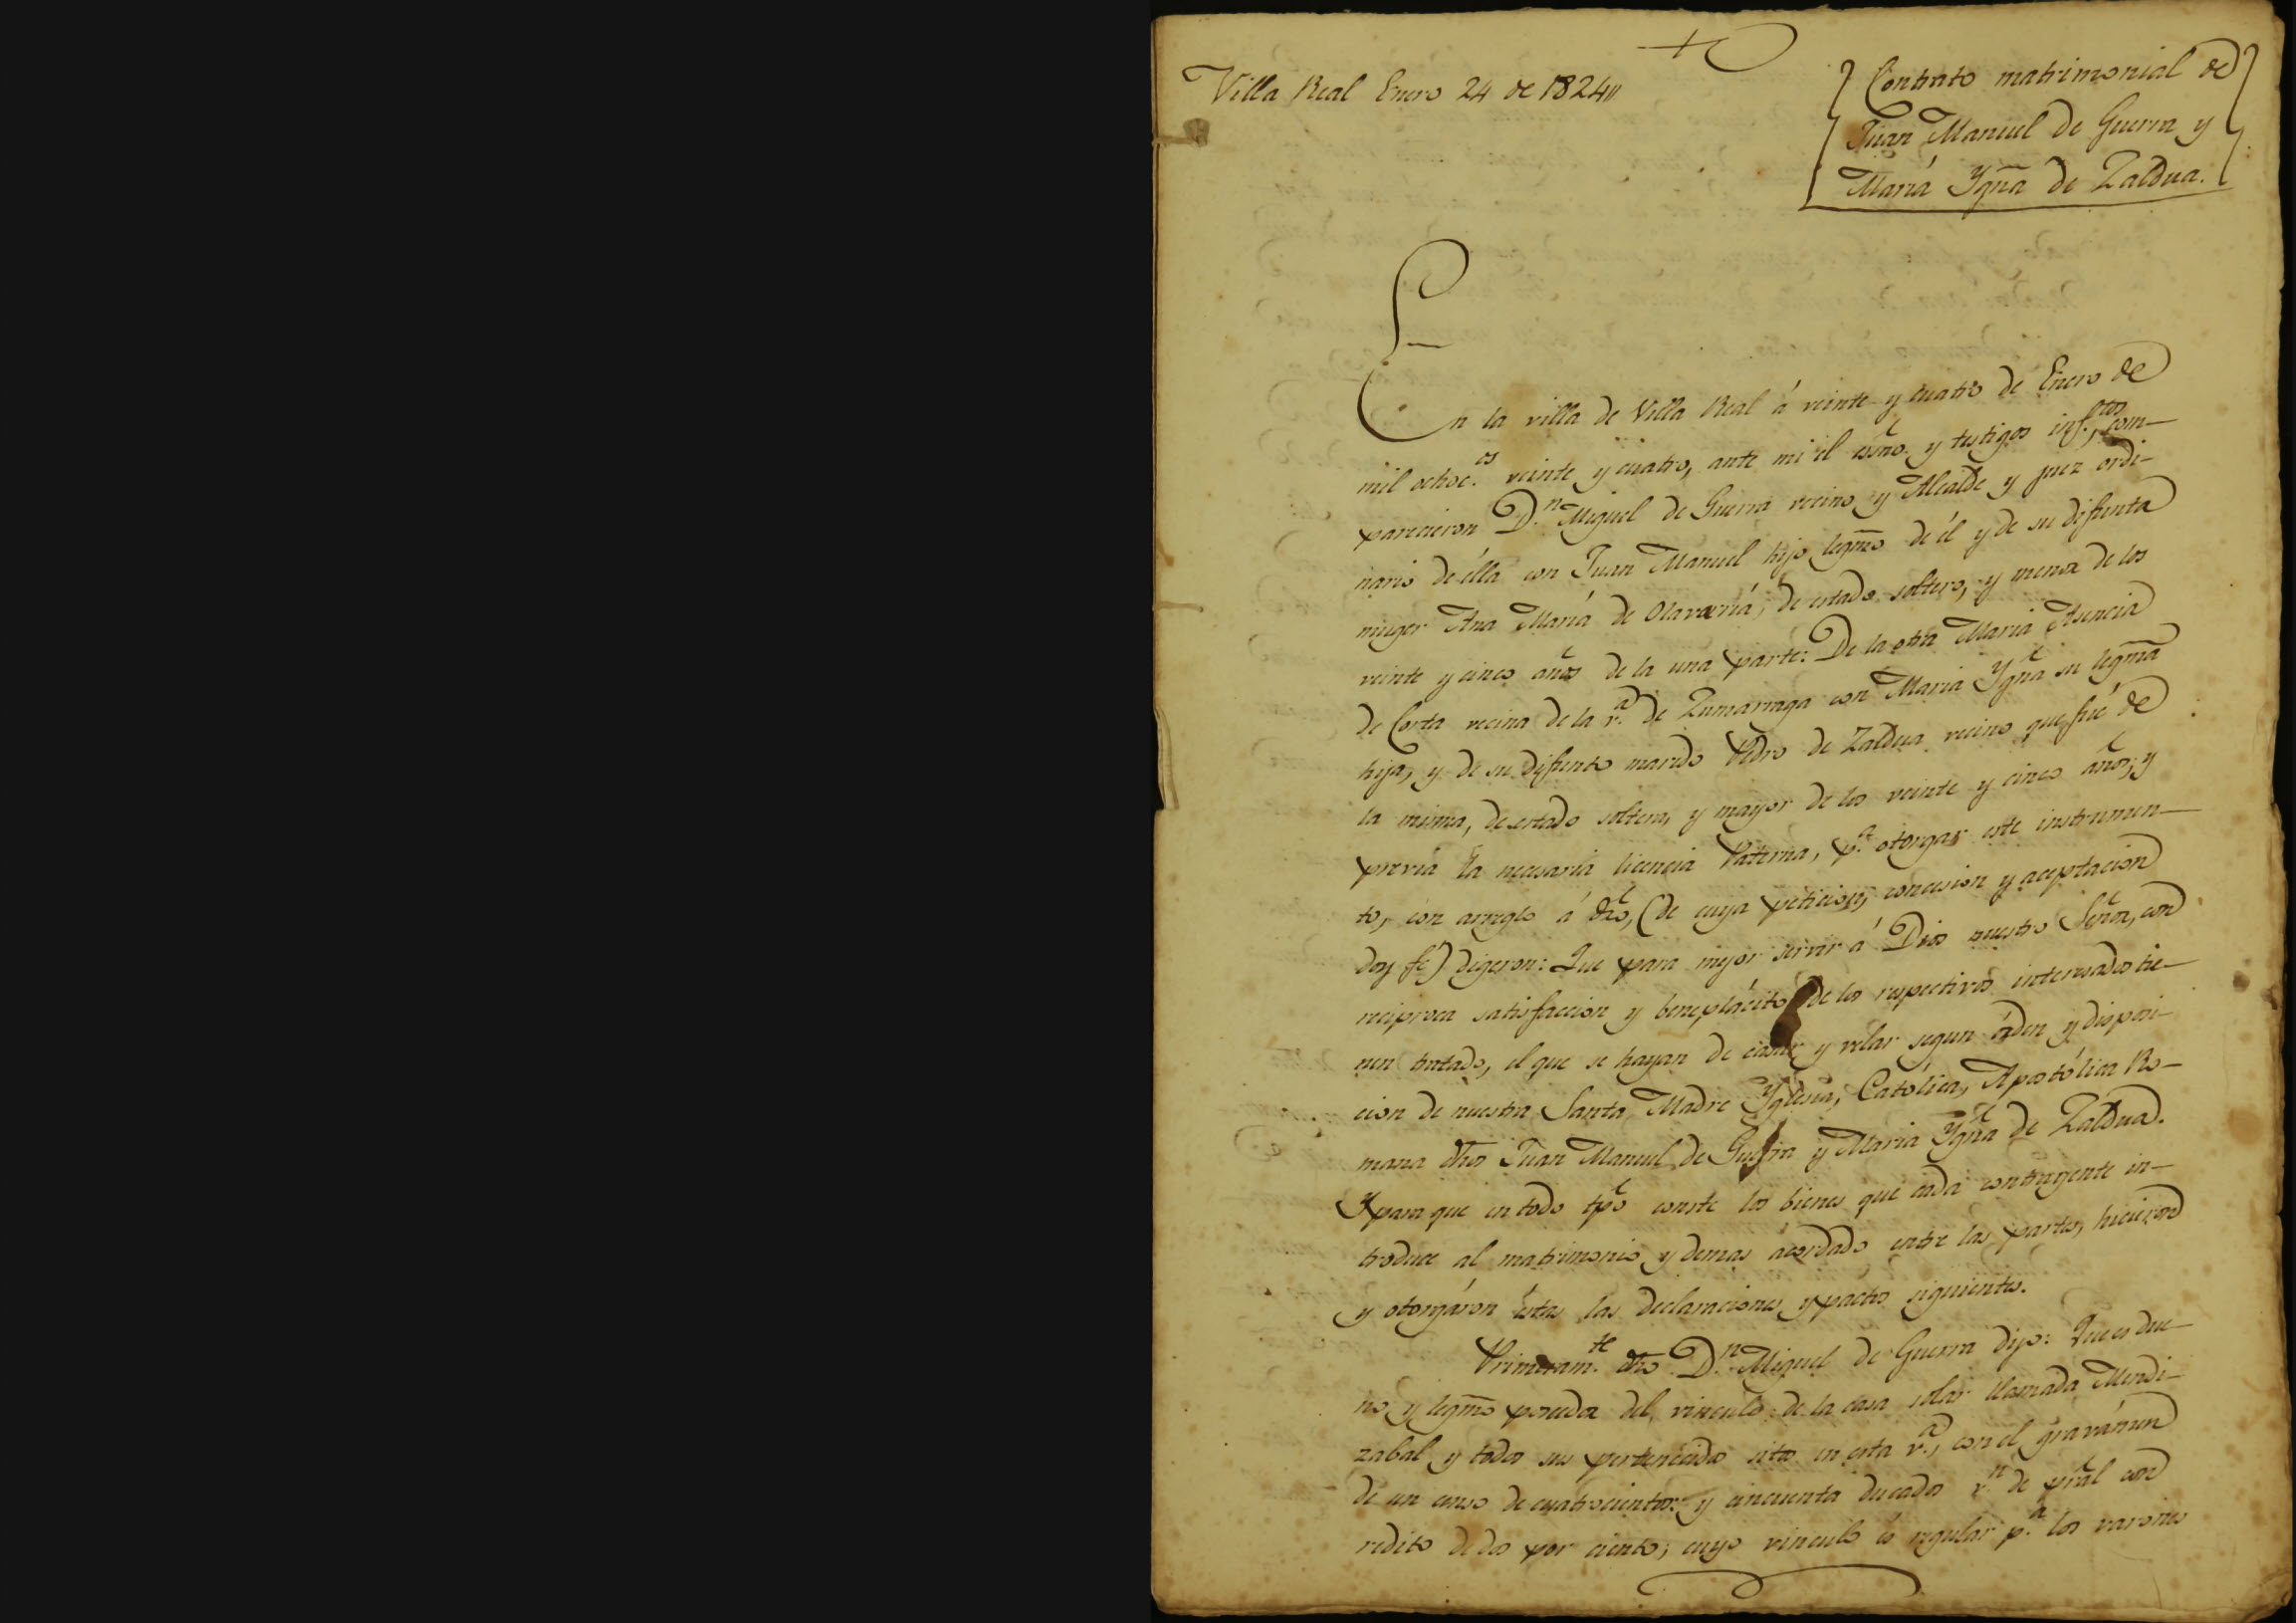 Villa Real Enero 24 de 1824
Contrato matrimonial de
Juan Manuel de Guerra y
María Ygña de Zaldua.
En la villa de Villa Real á veinte y cuatro de Enero de
mil ochoc.os veinte y cuatro, ante mi el esño. y testigos inf.ptos com-
parecieron D.n Miguel de Guerra vecino y Alcalde y juez ordi-
nario de élla con Juan Manuel hijo legmo de él y de su difunta
muger Ana María de Olavarría, de estado soltero, y menor de los
veinte y cinco años de la una parte: De la otra Maria Asencia
de Corta vecina de la v.a de Zumarraga con Maria Ygña su legma
hija, y de su difunto marido Pedro de Zaldua vecino que fué de
la misma, de estado soltera, y mayor de los veinte y cinco años; y
previa la necesaria licencia Paterna, p.a otorgar este instrumen-
to, con arreglo á dro, (de cuya peticion, concesion y aceptacion
doy fé) digeron: Que para mejor servir á Dios nuestro Señor, con
reciproca satisfaccion y beneplácito de los respectivos interesados tie-
nen tratado, el que se hayan de casar y velar segun órden y disposi-
cion de nuestra Santa Madre Yglesia, Católica, Apostólica Ro-
mana dhos Juan Manuel de Guerra y Maria Ygña de Zaldua.
Y para que en todo tpo conste los bienes que cada contrayente in-
troduce al matrimonio y demas acordado entre las partes, hicieron
y otorgáron éstas las declaraciones y pactos siguientes.
Primeram.te dho D.n Miguel de Guerra dijo: Que es due-
ño y legmo poseedor del vinculo de la casa solar llamada Mendi-
zabal y todos sus pertenecidos sita en esta v.a, con el gravámen
de un censo de cuatrocientos y cincuenta ducados v.n de pral con
redito de dos por ciento; cuyo vinculo es regular p.a los varones